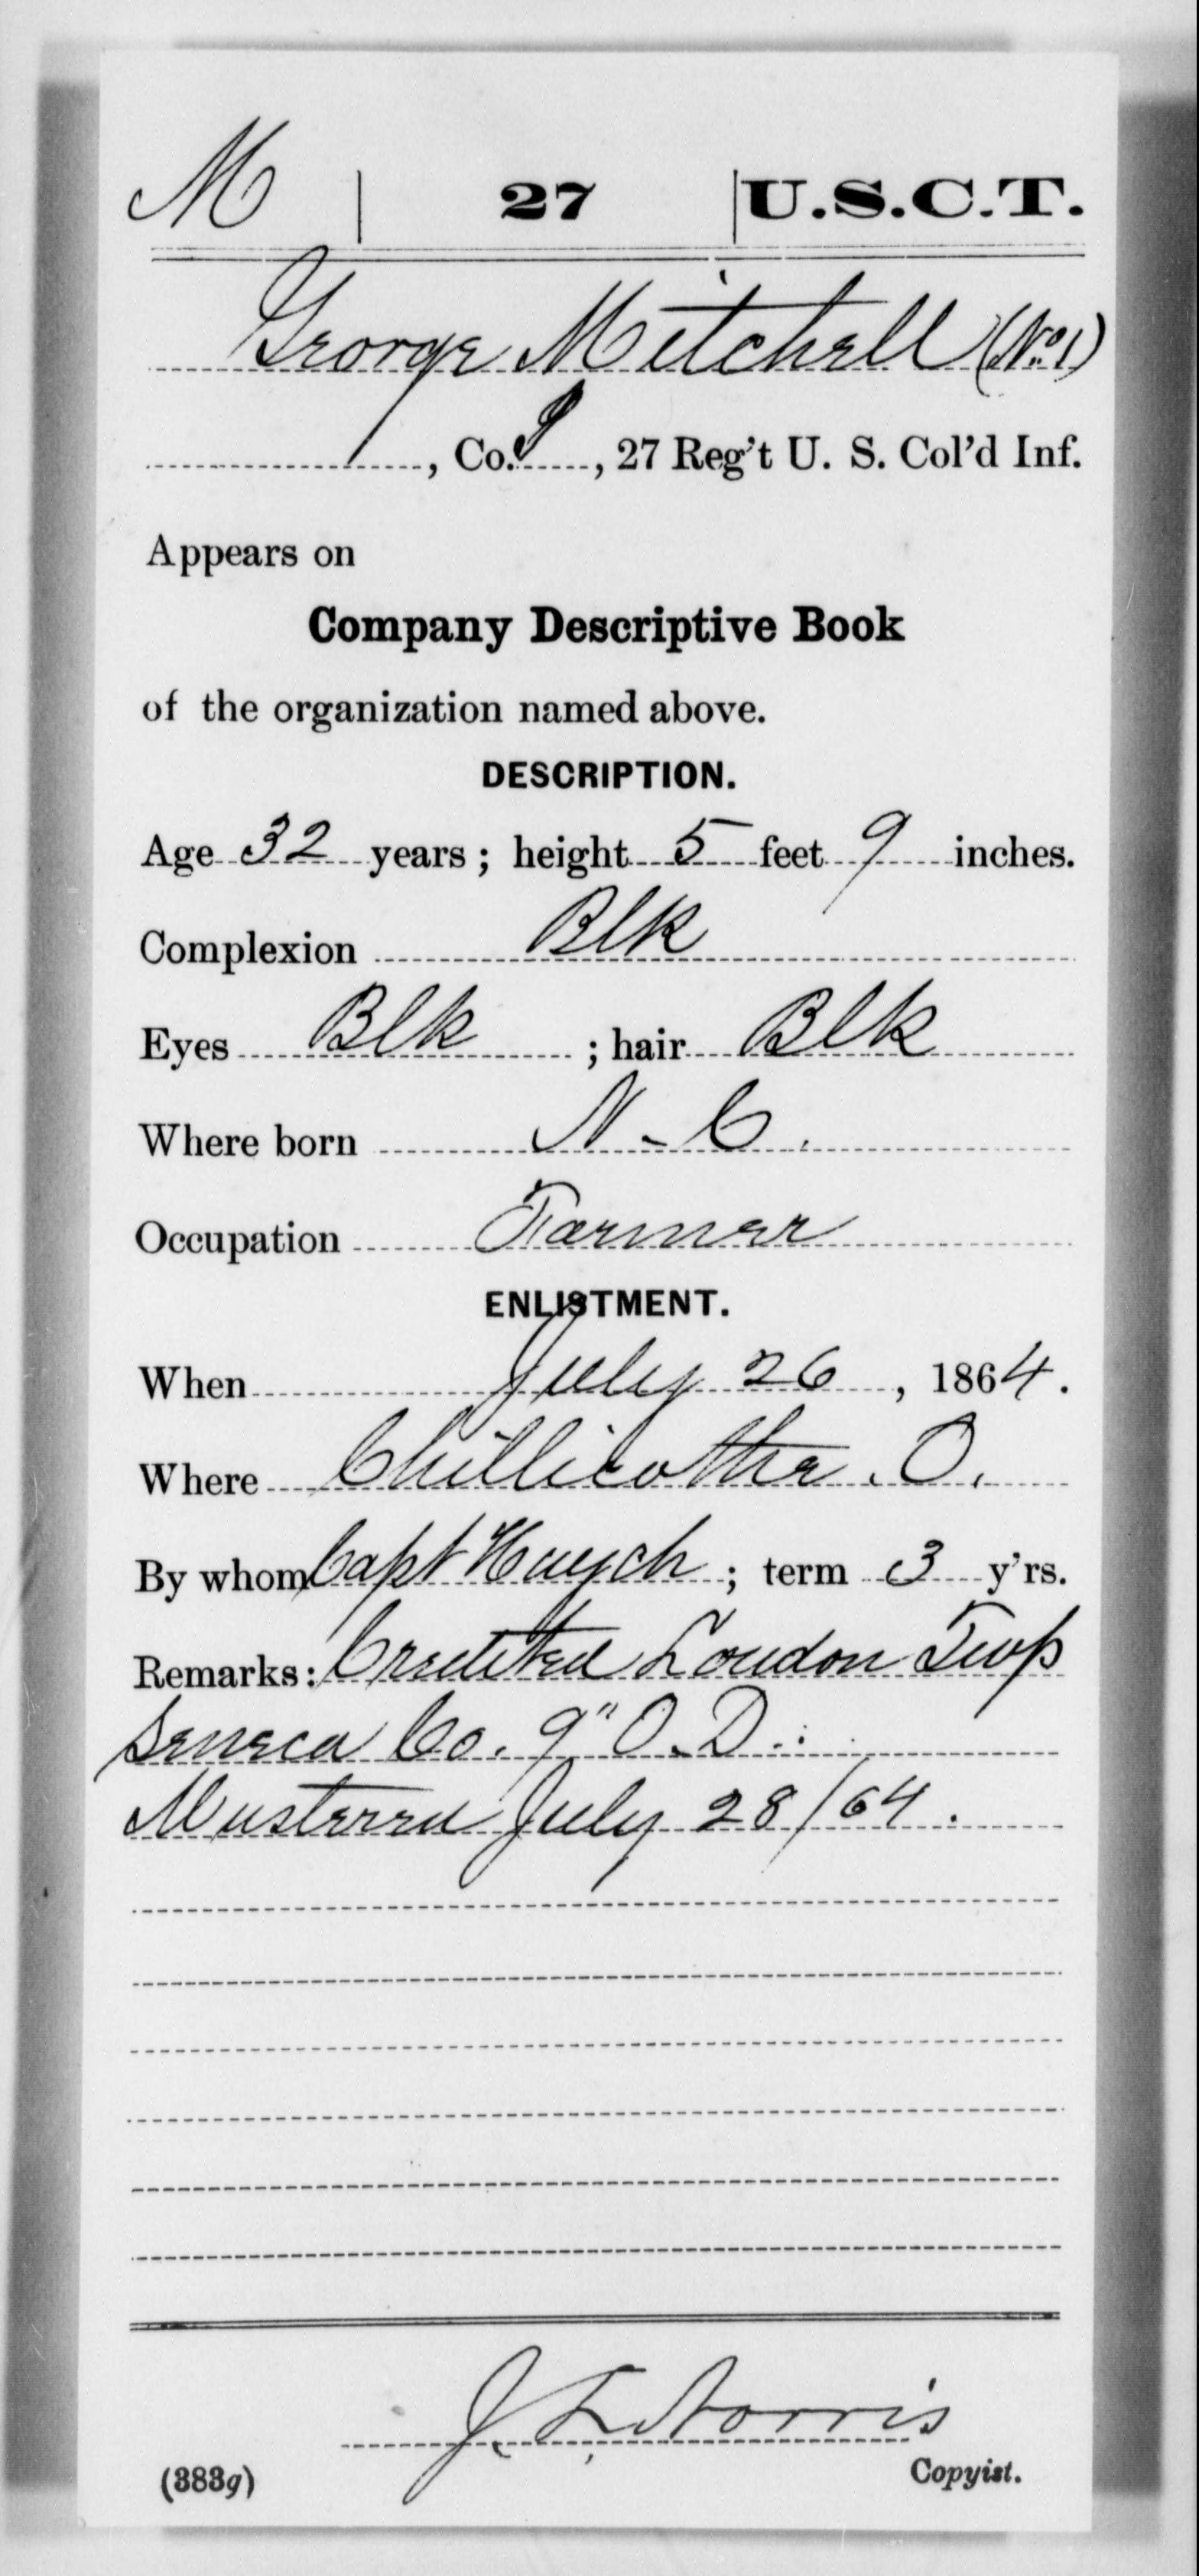 M | 27 | U.S.C.T.
George Mitchell (No. 1)
, Co. I, 27 Reg't U. S. Col'd Inf.
Appears on
Company Descriptive Book
of the organization named above.
DESCRIPTION.
Age 32 years; height 5 feet 9 inches.
Complexion Blk
Eyes Blk; hair Blk
Where born N. C.
Occupation Farmer
ENLISTMENT.
When July 26, 1864.
Where Chillicothe. O.
By whom Capt; term 3 y'rs.
Remarks: Credited Loudon Twp
Seneca Co. 9" O. D.
Mustered July 28/64.
Norris
(383g) Copyist.